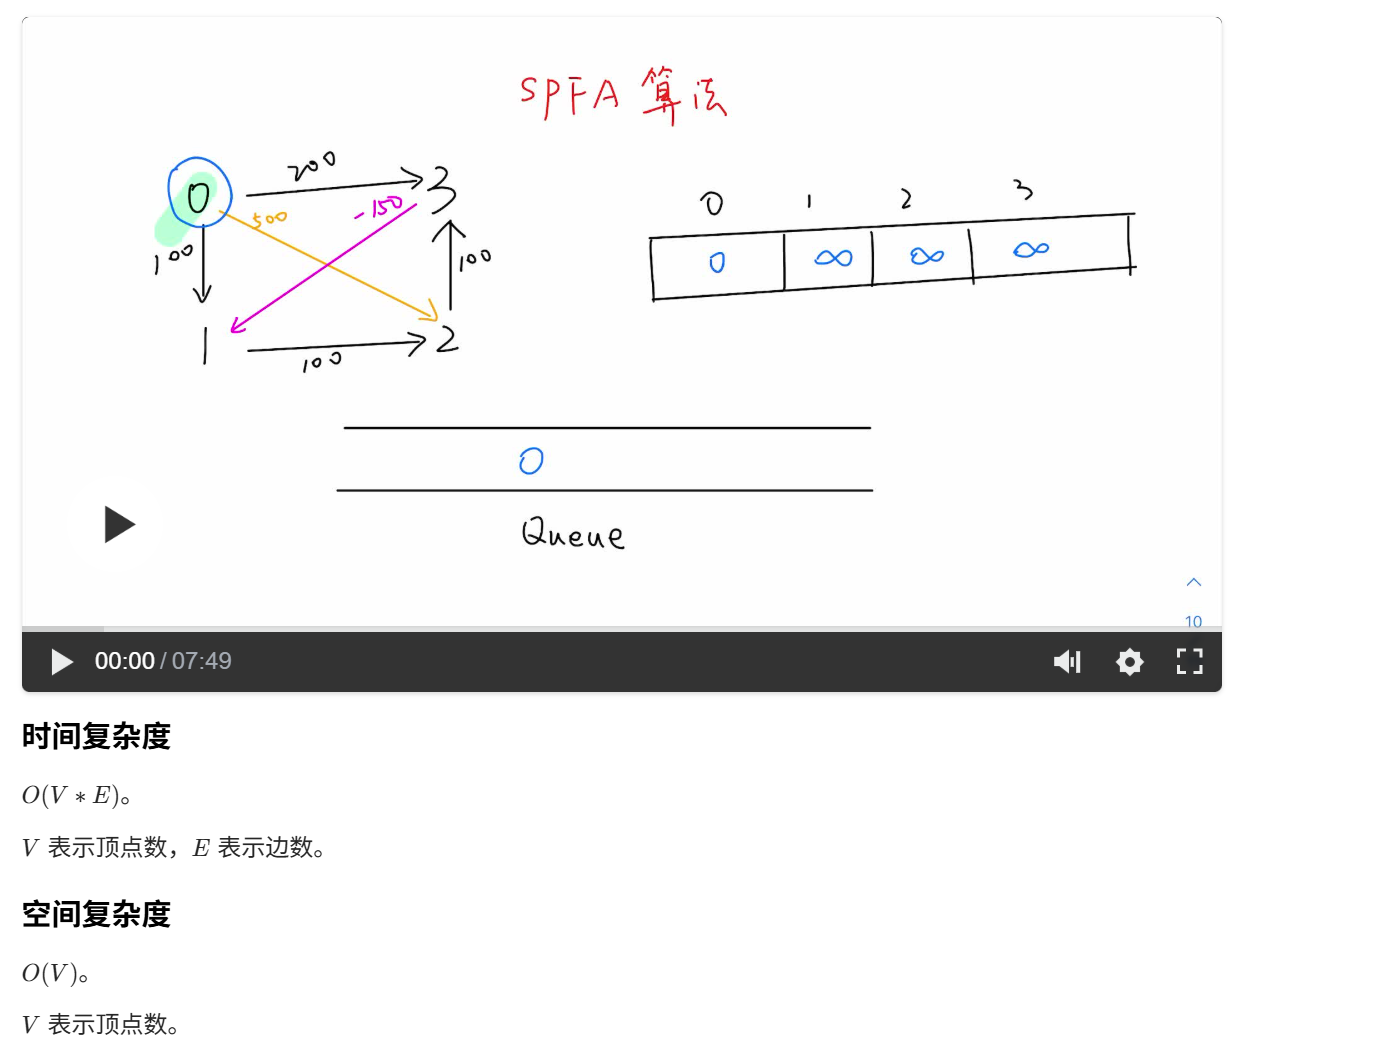 SPFA 算法
200
0
3
500
-150
100
100
1
100
2
0 1 2 3
0 ∞ ∞ ∞
0
Queue
10
00:00 / 07:49
时间复杂度
O(V * E)。
V 表示顶点数，E 表示边数。
空间复杂度
O(V)。
V 表示顶点数。